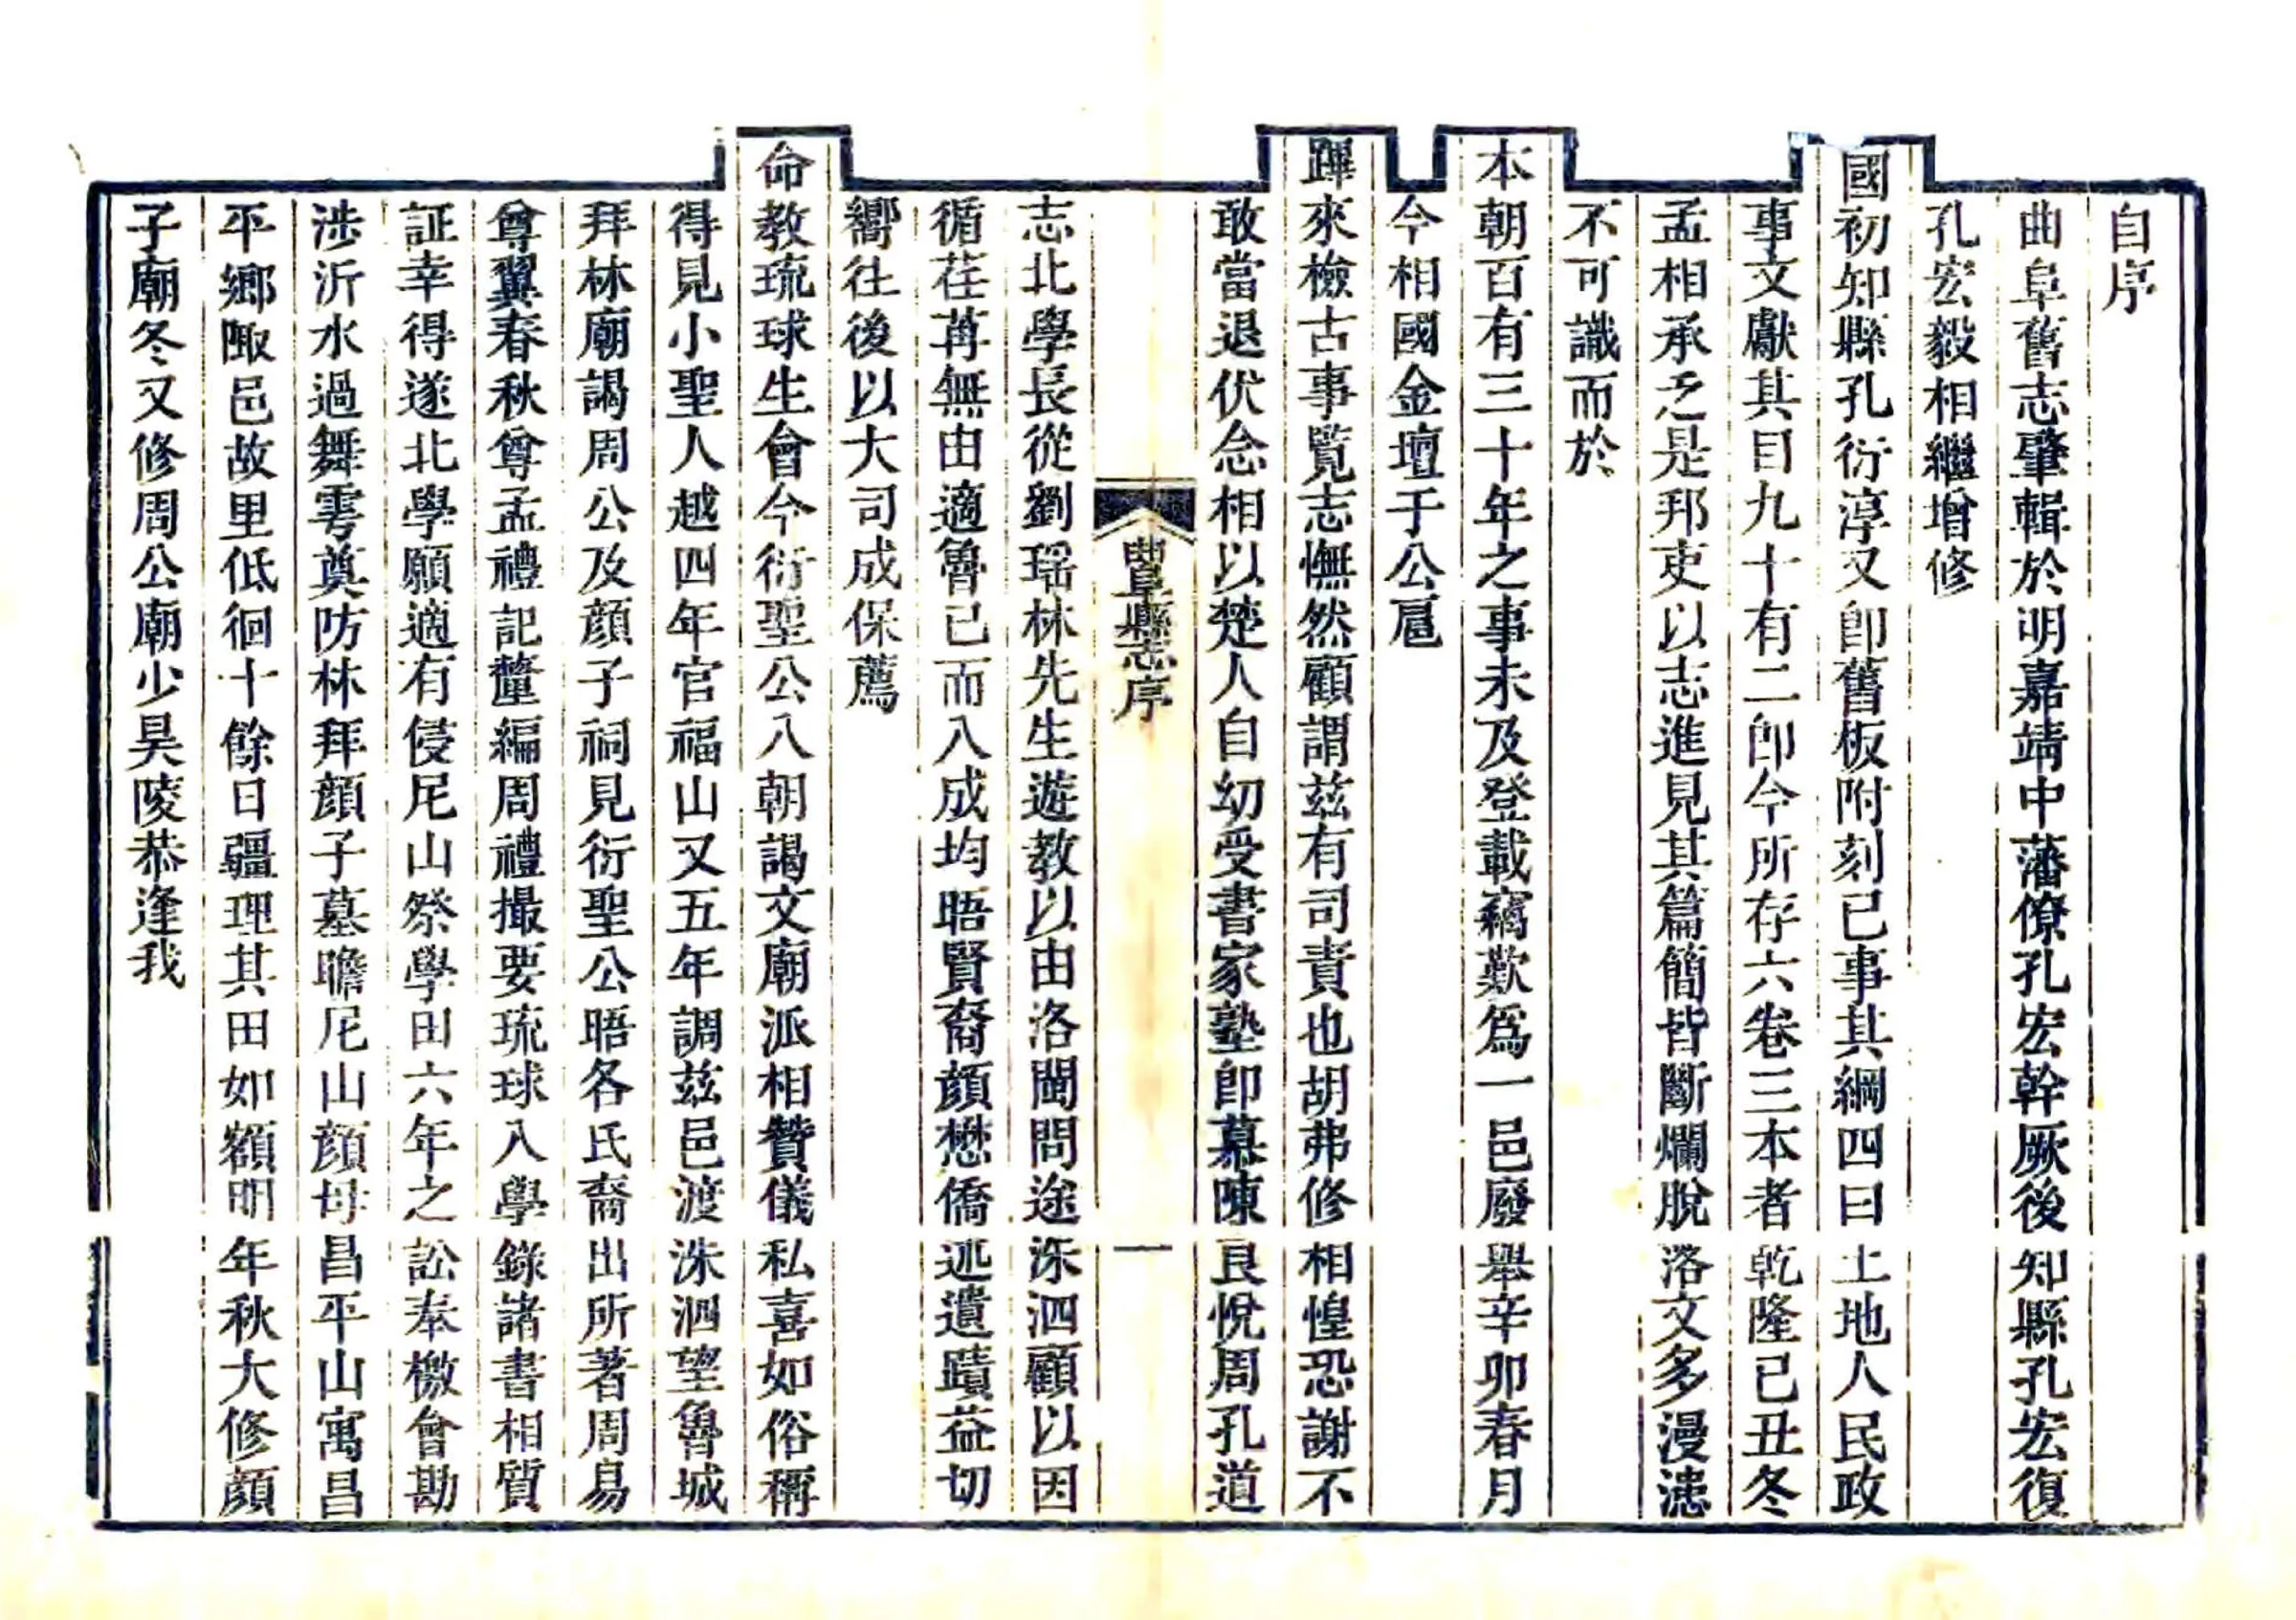 自序
曲阜舊志肇輯於明嘉靖中藩僚孔宏幹厥後知縣孔宏復
孔宏毅相繼增修
國初知縣孔衍淳又卽舊板附刻已事其綱四曰土地人民政
事文獻其目九十有二卽今所存六卷三本者乾隆己丑冬
孟相承乏是邦吏以志進見其篇簡皆斷爛脫落文多漫漶
不可識而於
本朝百有三十年之事未及登載竊歎爲一邑廢舉辛卯春月
今相國金壇于公扈
蹕來檢古事覧志憮然顧謂兹有司責也胡弗修相惶恐謝不
敢當退伏念相以楚人自幼受書家塾卽慕陳良悅周孔道
曲阜縣志序
一
志北學長從劉瑶林先生遊教以由洛閩問途洙泗顧以因
循荏苒無由適魯已而入成均晤賢裔顏懋僑述遺蹟益切
嚮往後以大司成保薦
命教琉球生會今衍聖公入朝謁文廟派相贊儀私喜如俗稱
得見小聖人越四年官福山又五年調兹邑渡洙泗望魯城
拜林廟謁周公及顏子祠見衍聖公晤各氏裔出所著周易
尊翼春秋尊孟禮記釐編周禮撮要琉球入學錄諸書相質
証幸得遂北學願適有侵尼山祭學田六年之訟奉檄會勘
涉沂水過舞雩奠防林拜顏子墓瞻尼山顏母昌平山寓昌
平鄉陬邑故里低徊十餘日疆理其田如額明年秋大修顏
子廟冬又修周公廟少昊陵恭逢我